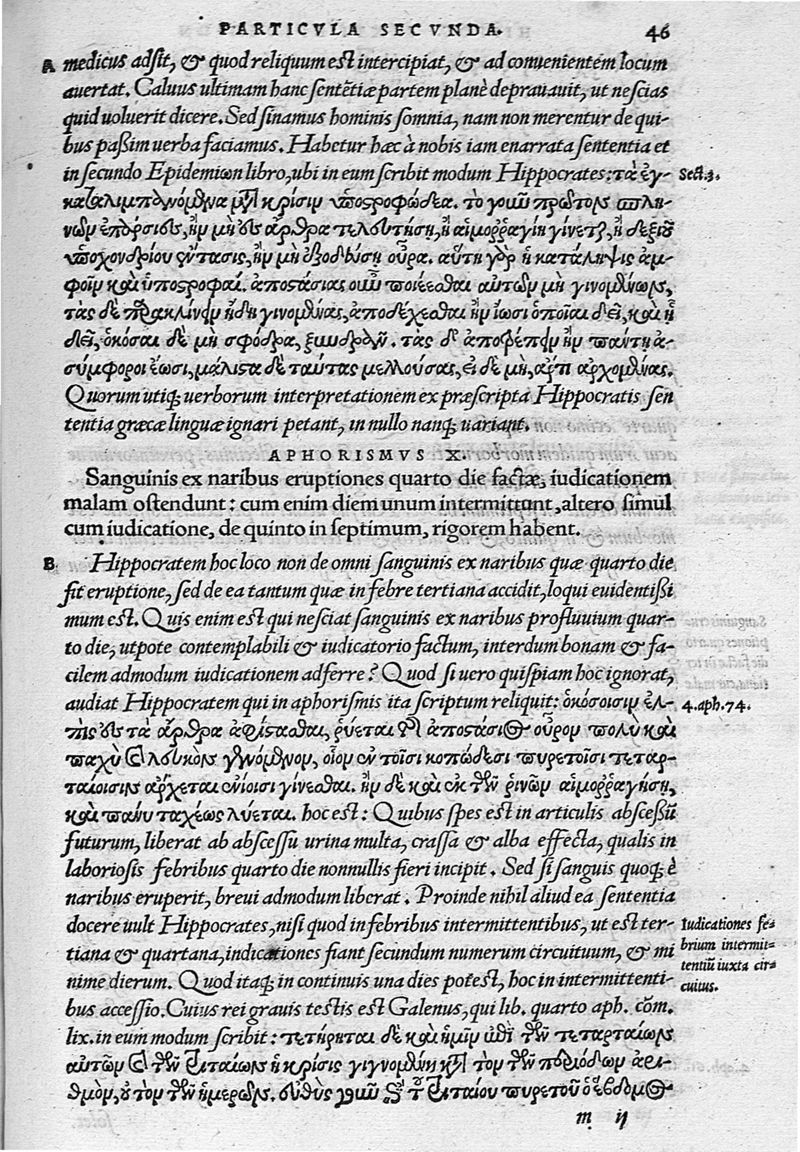 PARTICVLA SECVNDA. 46
A medicus adsit, & quod reliquum est intercipiat, & ad conuenientem locum
auertat. Caluus ultimam hanc sentētiæ partem planè deprauauit, ut nescias
quid uoluerit dicere. Sed sinamus hominis somnia, nam non merentur de qui-
bus paßim uerba faciamus. Habetur hæc à nobis iam enarrata sententia et
in secundo Epidemiωn libro, ubi in eum scribit modum Hippocrates: τὰ ἐγ-
Sect. 3.
καταλιμπανόμενα μετὰ κρίσιν ὑποστροφώδεα. τὸ γοῦν πρῶτον
ἢν μὴ ἐς ἄρθρα τελευτήσῃ, ἢ αἱμοῤῥαγίη γίνεται, ἢ δεξιοῦ
ὑποχονδρίου ξύντασις, ἢν μὴ ἐξοδεύσῃ οὖρα. αὕτη γὰρ ἡ κατάληψις ἀμ-
φοῖν καὶ ὑποστροφαί. ἀποστάσιας οὖν ποιέεσθαι αὐτὸν μὴ γινομένων,
τὰς δὲ ἐκκλίνειν ἤδη γινομένας, ἀποδέχεσθαι ἢν ἴωσι ὁποῖαι δεῖ, καὶ ᾗ
δεῖ, ὁκόσαι δὲ μὴ σφόδρα, ξυνδρᾶν. τὰς δ' ἀποτρέπειν ἢν πάντη ἀ-
σύμφοροι ἔωσι, μάλιστα δὲ ταύτας μελλούσας, εἰ δὲ μὴ, ἄρτι ἀρχομένας.
Quorum utiq; uerborum interpretationem ex præscripta Hippocratis sen
tentia græcæ linguæ ignari petant, in nullo nanq; uariant.
APHORISMVS X.
Sanguinis ex naribus eruptiones quarto die factæ, iudicationem
malam ostendunt: cum enim diem unum intermittunt, altero simul
cum iudicatione, de quinto in septimum, rigorem habent.
B Hippocratem hoc loco non de omni sanguinis ex naribus quæ quarto die
fit eruptione, sed de ea tantum quæ in febre tertiana accidit, loqui euidentißi
mum est. Quis enim est qui nesciat sanguinis ex naribus profluuium quar-
to die, utpote contemplabili & iudicatorio factum, interdum bonam & fa-
cilem admodum iudicationem adferre? Quod si uero quispiam hoc ignorat,
audiat Hippocratem qui in aphorismis ita scriptum reliquit: ὁκόσοισιν ἐλ-
4. aph. 74.
πὶς ἐς τὰ ἄρθρα ἀφίστασθαι, ῥύεται τῆς ἀποστάσιος οὖρον πολὺ καὶ
παχὺ καὶ λευκὸν γινόμενον, οἷον ἐν τοῖσι κοπώδεσι πυρετοῖσι τεταρ-
ταίοισιν ἄρχεται ἐνίοισι γίνεσθαι. ἢν δὲ καὶ ἐκ τῶν ῥινῶν αἱμοῤῥαγήσῃ,
καὶ πάνυ ταχέως λύεται. hoc est: Quibus spes est in articulis abscessū
futurum, liberat ab abscessu urina multa, crassa & alba effecta, qualis in
laboriosis febribus quarto die nonnullis fieri incipit. Sed si sanguis quoq; è
naribus eruperit, breui admodum liberat. Proinde nihil aliud ea sententia
docere uult Hippocrates, nisi quod in febribus intermittentibus, ut est ter-
tiana & quartana, indicationes fiant secundum numerum circuituum, & mi
nime dierum. Quod itaq; in continuis una dies potest, hoc in intermittenti-
bus accessio. Cuius rei grauis testis est Galenus, qui lib. quarto aph. cōm.
Iudicationes fe-
brium intermit-
tentiū iuxta cir-
cuitus.
lix. in eum modum scribit: τετήρηται δὲ καὶ ἡμῖν ἐπὶ τῶν τεταρταίων
αὐτῶν καὶ τῶν τριταίων ἡ κρίσις γιγνομένη κατὰ τὸν τῶν περιόδων ἀρι-
θμὸν, οὐ τὸν τῶν ἡμερῶν. εὐθὺς γοῦν ἐπὶ τοῦ τριταίου πυρετοῦ ὁ ἕβδομος
m ij